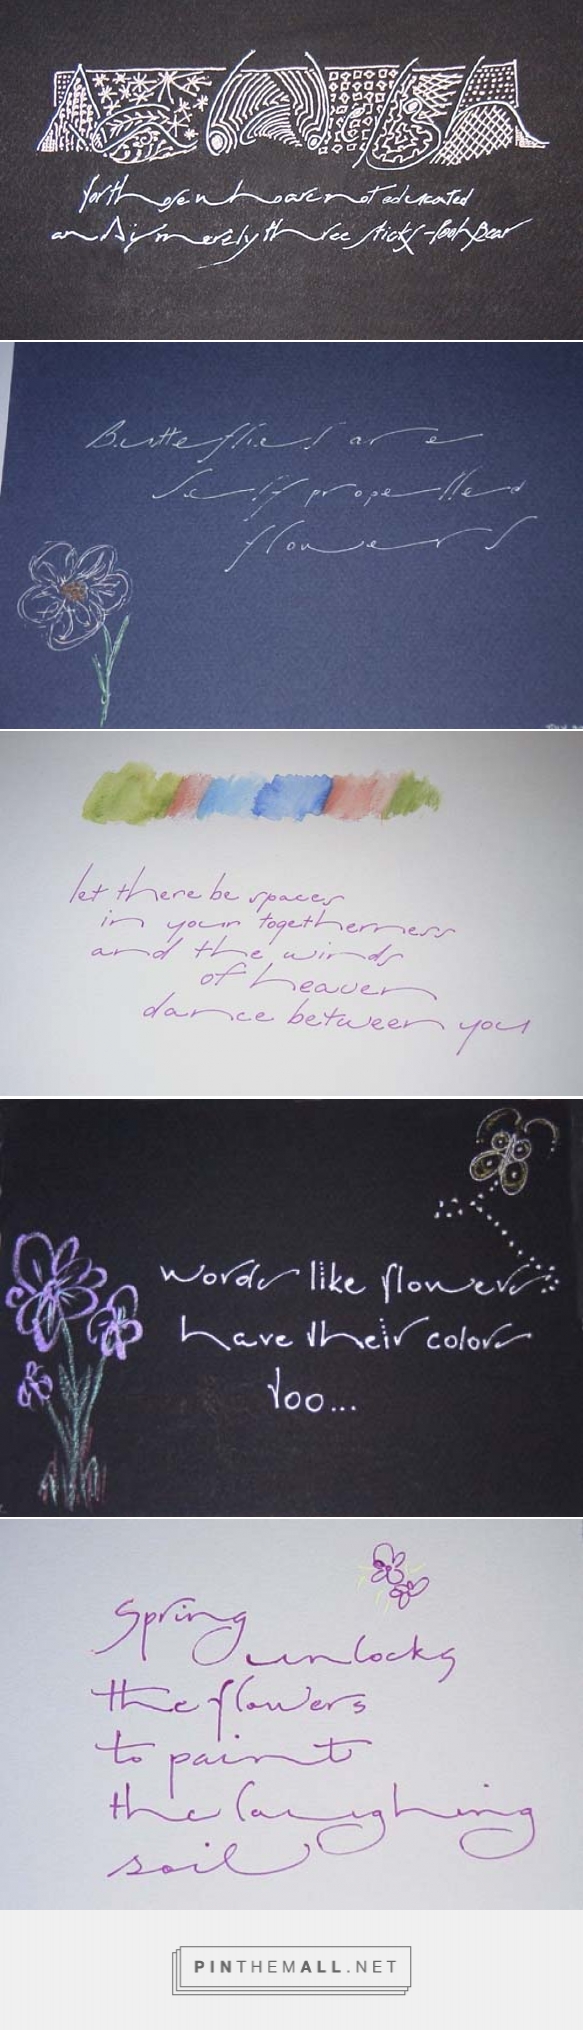 for those who are not educated
an A is merely three sticks - Pooh Bear
Butterflies are
self propelled
flowers
let there be spaces
in your togetherness
and the winds
of heaven
dance between you
words like flowers
have their colors
too...
Spring
unlocks
the flowers
to paint
the laughing
soil
PINTHEMALL.NET